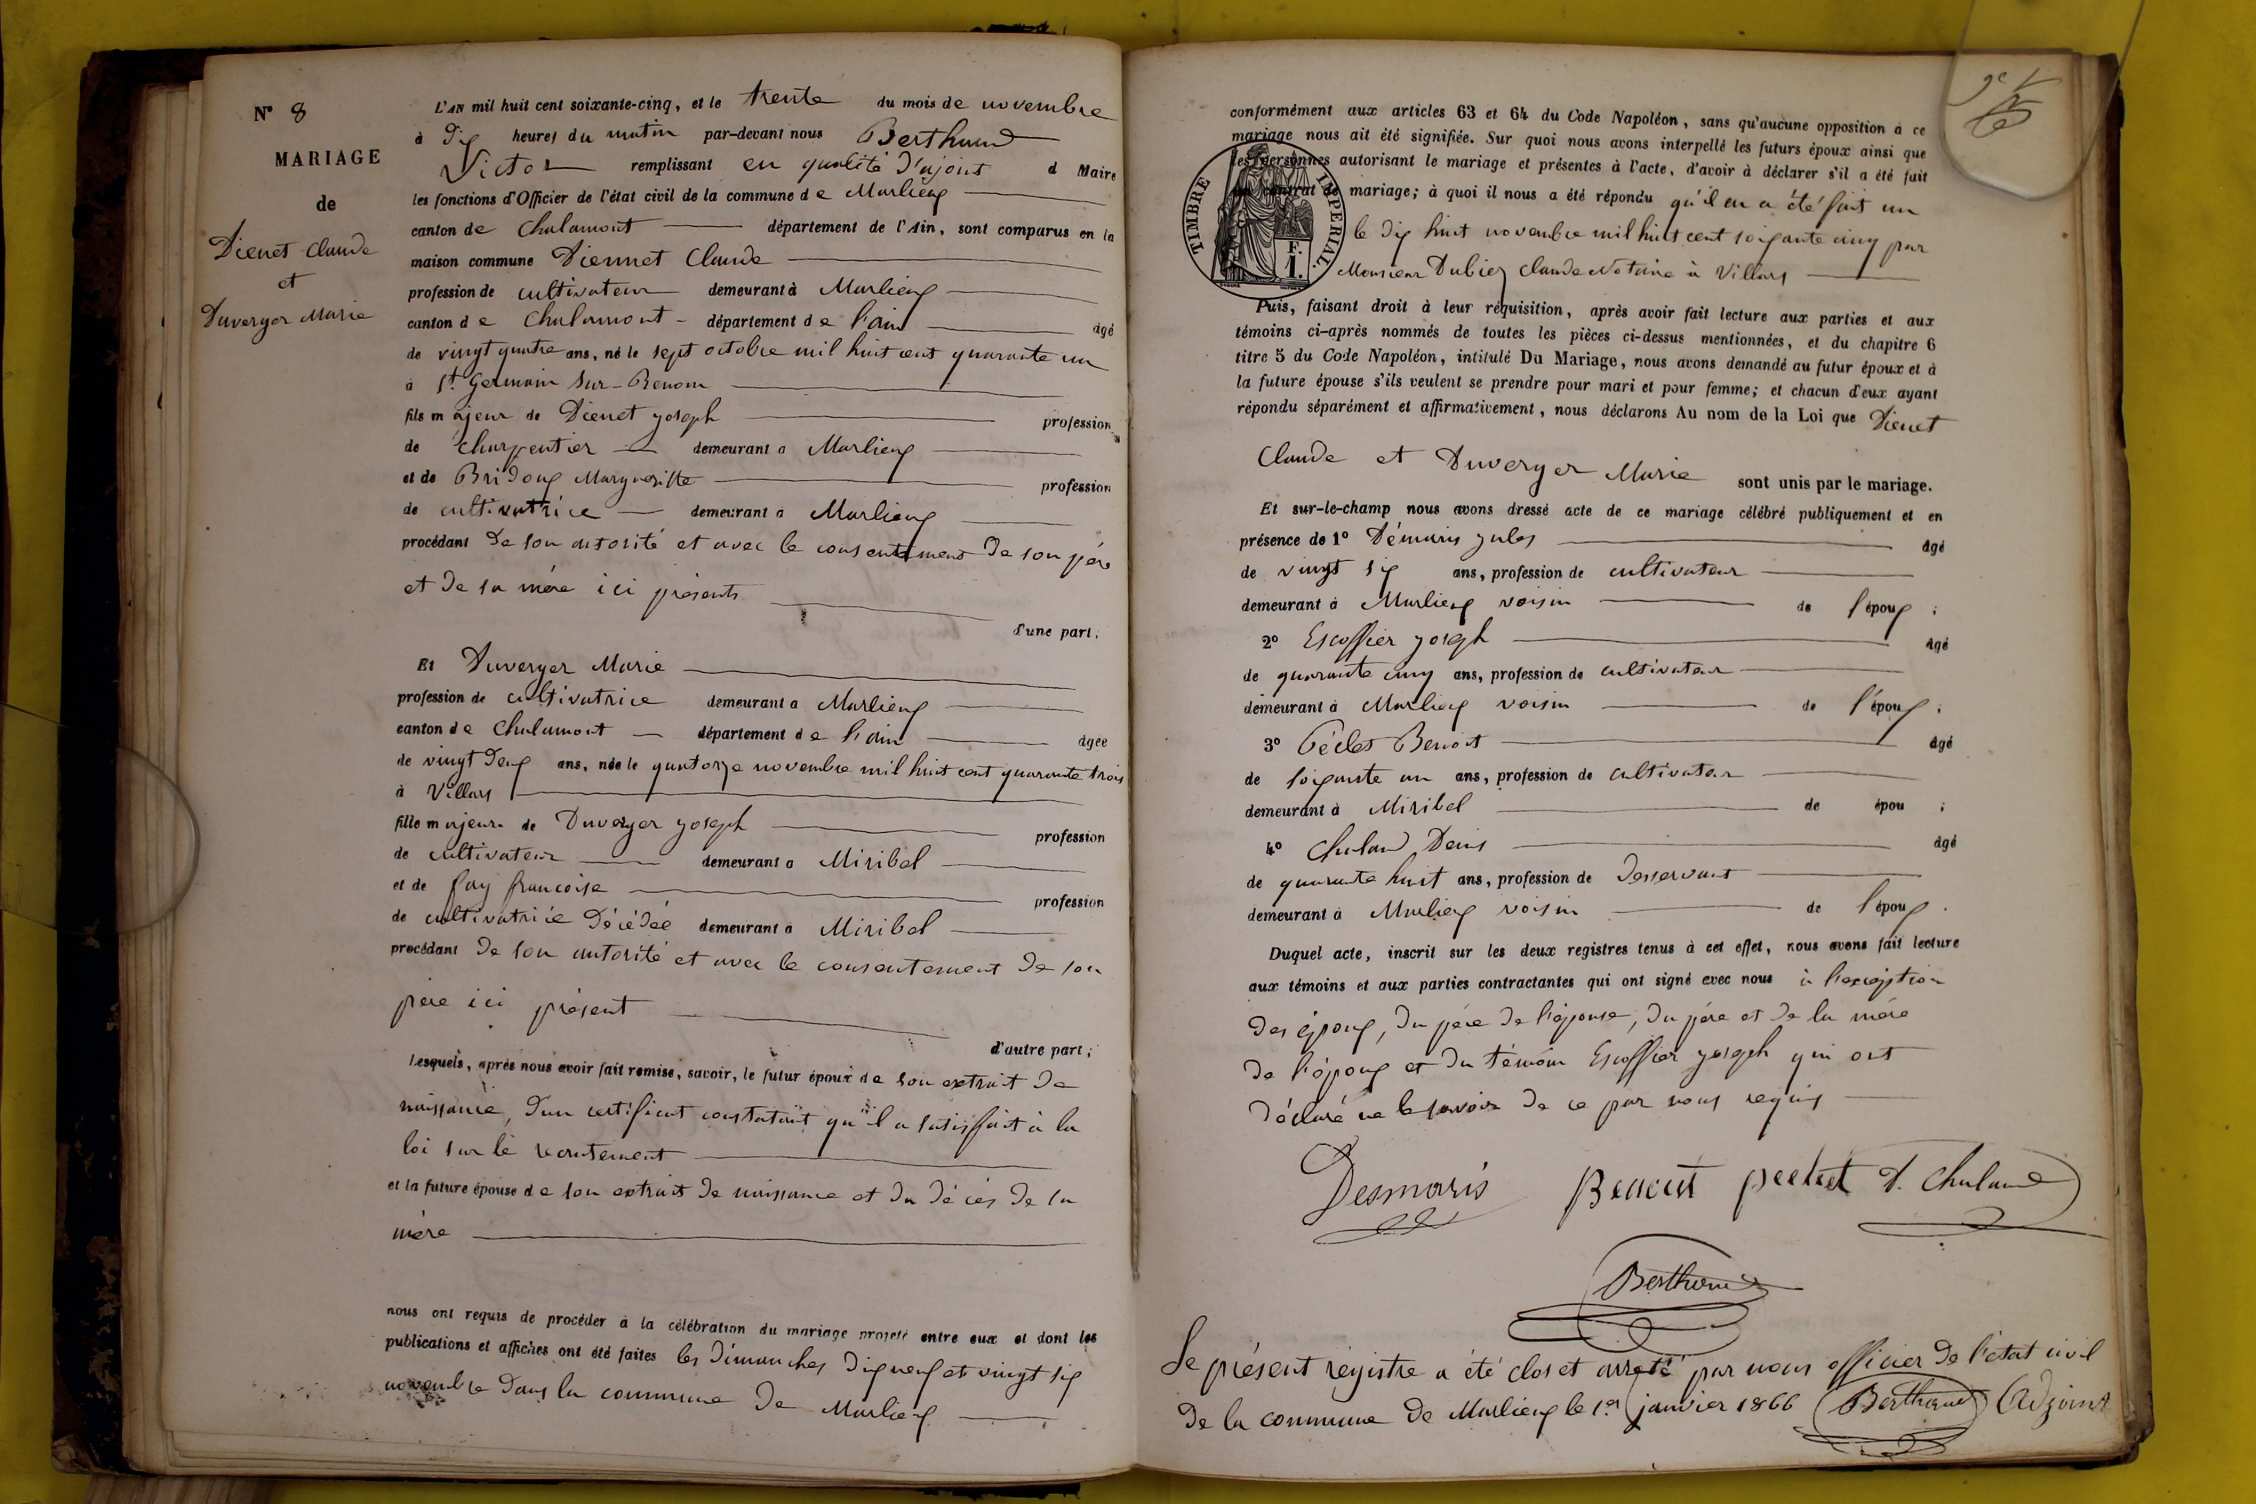 N° 8
MARIAGE
de
Dienet Claude
et
Duverger Marie
L'AN mil huit cent soixante-cinq, et le trente du mois de novembre
à dix heures du matin par-devant nous Berthaud
Victor remplissant en qualité d'ajoint d Maire
les fonctions d'Officier de l'état civil de la commune de Marlieux
canton de Chalamont département de l'Ain, sont comparus en la
maison commune Diennet Claude
profession de cultivateur demeurant à Marlieux
canton de Chalamont département de l'ain âgé
de vingt quatre ans, né le sept octobre mil huit cent quarante un
à St Germain Sur-Renom
fils majeur de Dienet joseph profession
de charpentier demeurant à Marlieux
et de Bridoux Margueritte profession
de cultivatrice demeurant à Marlieux
procédant de son autorité et avec le consentement de son père
et de sa mère ici présents
d'une part;
Et Duverger Marie
profession de cultivatrice demeurant à Marlieux
canton de Chalamont département de l'ain âgée
de vingt deux ans, née le quatorze novembre mil huit cent quarante trois
à Villars
fille majeure de Duverger joseph profession
de cultivateur demeurant à Miribel
et de fay francoise profession
de cultivatrice décédée demeurant à Miribel
procédant de son autorité et avec le consentement de son
père ici présent
d'autre part;
Lesquels, après nous avoir fait remise, savoir, le futur époux de son extrait de
naissance, d'un certificat constatant qu'il a satisfait à la
loi sur le recrutement
et la future épouse de son extrait de naissance et du décès de sa
mère
nous ont requis de procéder à la célébration du mariage projeté entre eux et dont les
publications et affiches ont été faites les dimanches dix neuf et vingt six
novembre dans la commune de Marlieux
conformément aux articles 63 et 64 du Code Napoléon, sans qu'aucune opposition à ce
mariage nous ait été signifiée. Sur quoi nous avons interpellé les futurs époux ainsi que
les personnes autorisant le mariage et présentes à l'acte, d'avoir à déclarer s'il a été fait
un contrat de mariage; à quoi il nous a été répondu qu'il en a été fait un
le dix huit novembre mil huit cent soixante cinq par
Monsieur Dubiez Claude Notaire à Villars
TIMBRE IMPERIAL.
F.
1.
Puis, faisant droit à leur réquisition, après avoir fait lecture aux parties et aux
témoins ci-après nommés de toutes les pièces ci-dessus mentionnées, et du chapitre 6
titre 5 du Code Napoléon, intitulé Du Mariage, nous avons demandé au futur époux et à
la future épouse s'ils veulent se prendre pour mari et pour femme; et chacun d'eux ayant
répondu séparément et affirmativement, nous déclarons Au nom de la Loi que Dienet
Claude et Duverger Marie sont unis par le mariage.
Et sur-le-champ nous avons dressé acte de ce mariage célébré publiquement et en
présence de 1° Démaris jules âgé
de vingt six ans, profession de cultivateur
demeurant à Marlieux voisin de l'époux;
2° Escoffier joseph âgé
de quarante cinq ans, profession de cultivateur
demeurant à Marlieux voisin de l'époux;
3° Péclet Benoit âgé
de soixante un ans, profession de cultivateur
demeurant à Miribel de épou;
4° Chaland Denis âgé
de quarante huit ans, profession de desservant
demeurant à Marlieux voisin de l'époux.
Duquel acte, inscrit sur les deux registres tenus à cet effet, nous avons fait lecture
aux témoins et aux parties contractantes qui ont signé avec nous à l'exception
des époux, du père de l'épouse, du père et de la mère
de l'époux et du témoin Escoffier joseph qui ont
déclaré ne le savoir de ce par nous requis
Desmaris Benoit peclet D. Chaland
Berthaud
Le présent régistre a été clos et arreté par nous officier de l'état civil
de la commune de Marlieux le 1er janvier 1866 Berthaud Adjoint